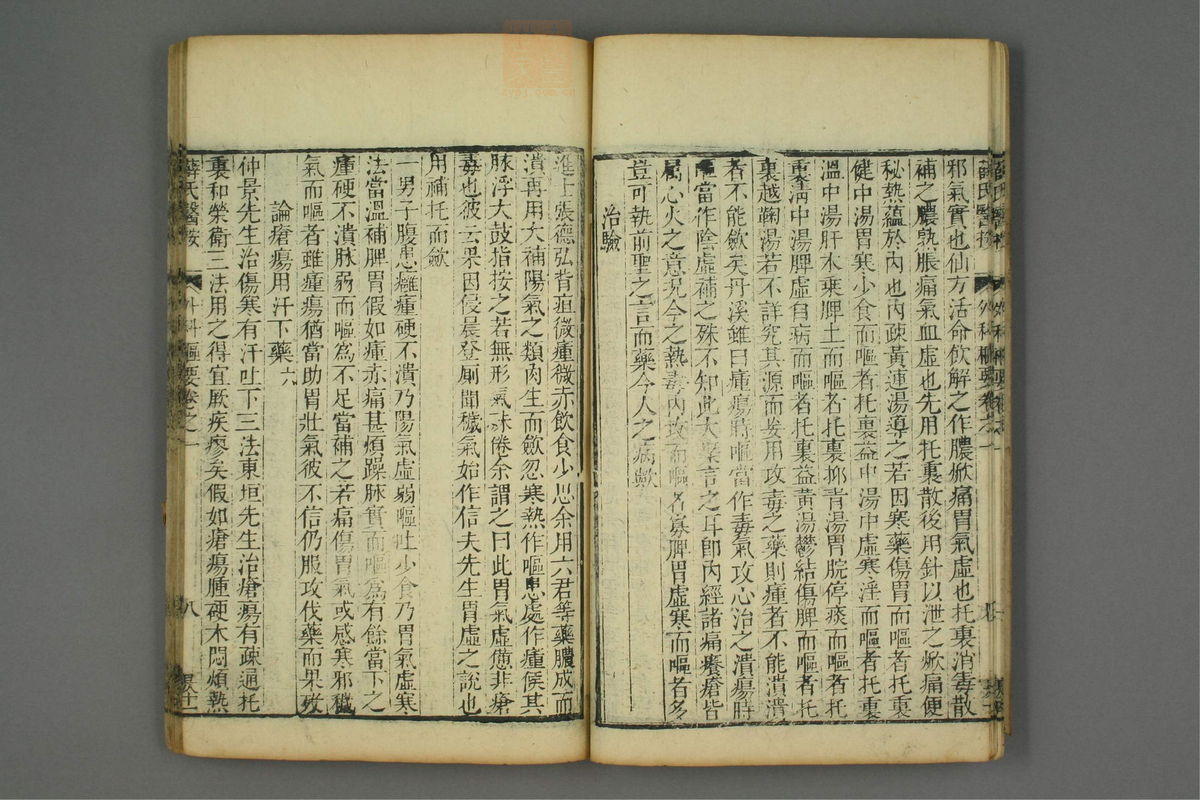 薛氏醫按 外科樞要卷之一
邪氣實也仙方活命飲解之作膿焮痛胃氣虛也托裏消毒散
補之膿熟脹痛氣血虛也先用托裏散後用針以泄之焮痛便
秘熱蘊於內也內疎黃連湯導之若因寒藥傷胃而嘔者托裏
健中湯胃寒少食而嘔者托裏益中湯中虛寒淫而嘔者托裏
溫中湯肝木乗脾土而嘔者托裏抑青湯胃脘停痰而嘔者托
裏淸中湯脾虛自病而嘔者托裏益黃湯鬱結傷脾而嘔者托
裏越鞠湯若不詳究其源而妄用攻毒之藥則腫者不能潰潰
者不能歛矣丹溪雖曰腫瘍時嘔當作毒氣攻心治之潰瘍時
嘔當作陰虛補之殊不知此大槩言之耳卽內經諸痛癢瘡皆
屬心火之意況今之熱毒內攻而嘔者寡脾胃虛寒而嘔者多
豈可執前聖之言而藥今人之病歟
治驗
進士張德弘背疽微腫微赤飲食少思余用六君等藥膿成而
潰再用大補陽氣之類肉生而歛忽寒熱作嘔患處作腫候其
脉浮大鼓指按之若無形氣殊倦余謂之曰此胃氣虛憊非瘡
毒也彼云果因侵晨登厠聞穢氣始作信夫先生胃虛之說也
用補托而歛
一男子腹患癰腫硬不潰乃陽氣虛弱嘔吐少食乃胃氣虛寒
法當溫補脾胃假如腫赤痛甚煩躁脉實而嘔爲有餘當下之
腫硬不潰脉弱而嘔爲不足當補之若痛傷胃氣或感寒邪穢
氣而嘔者雖腫瘍猶當助胃壯氣彼不信仍服攻伐藥而果歿
論瘡瘍用汗下藥六
仲景先生治傷寒有汗吐下三法東垣先生治瘡瘍有疎通托
裏和榮衛三法用之得宜厥疾瘳矣假如瘡瘍腫硬木悶煩熱
薛氏醫按 外科樞要卷之一 八